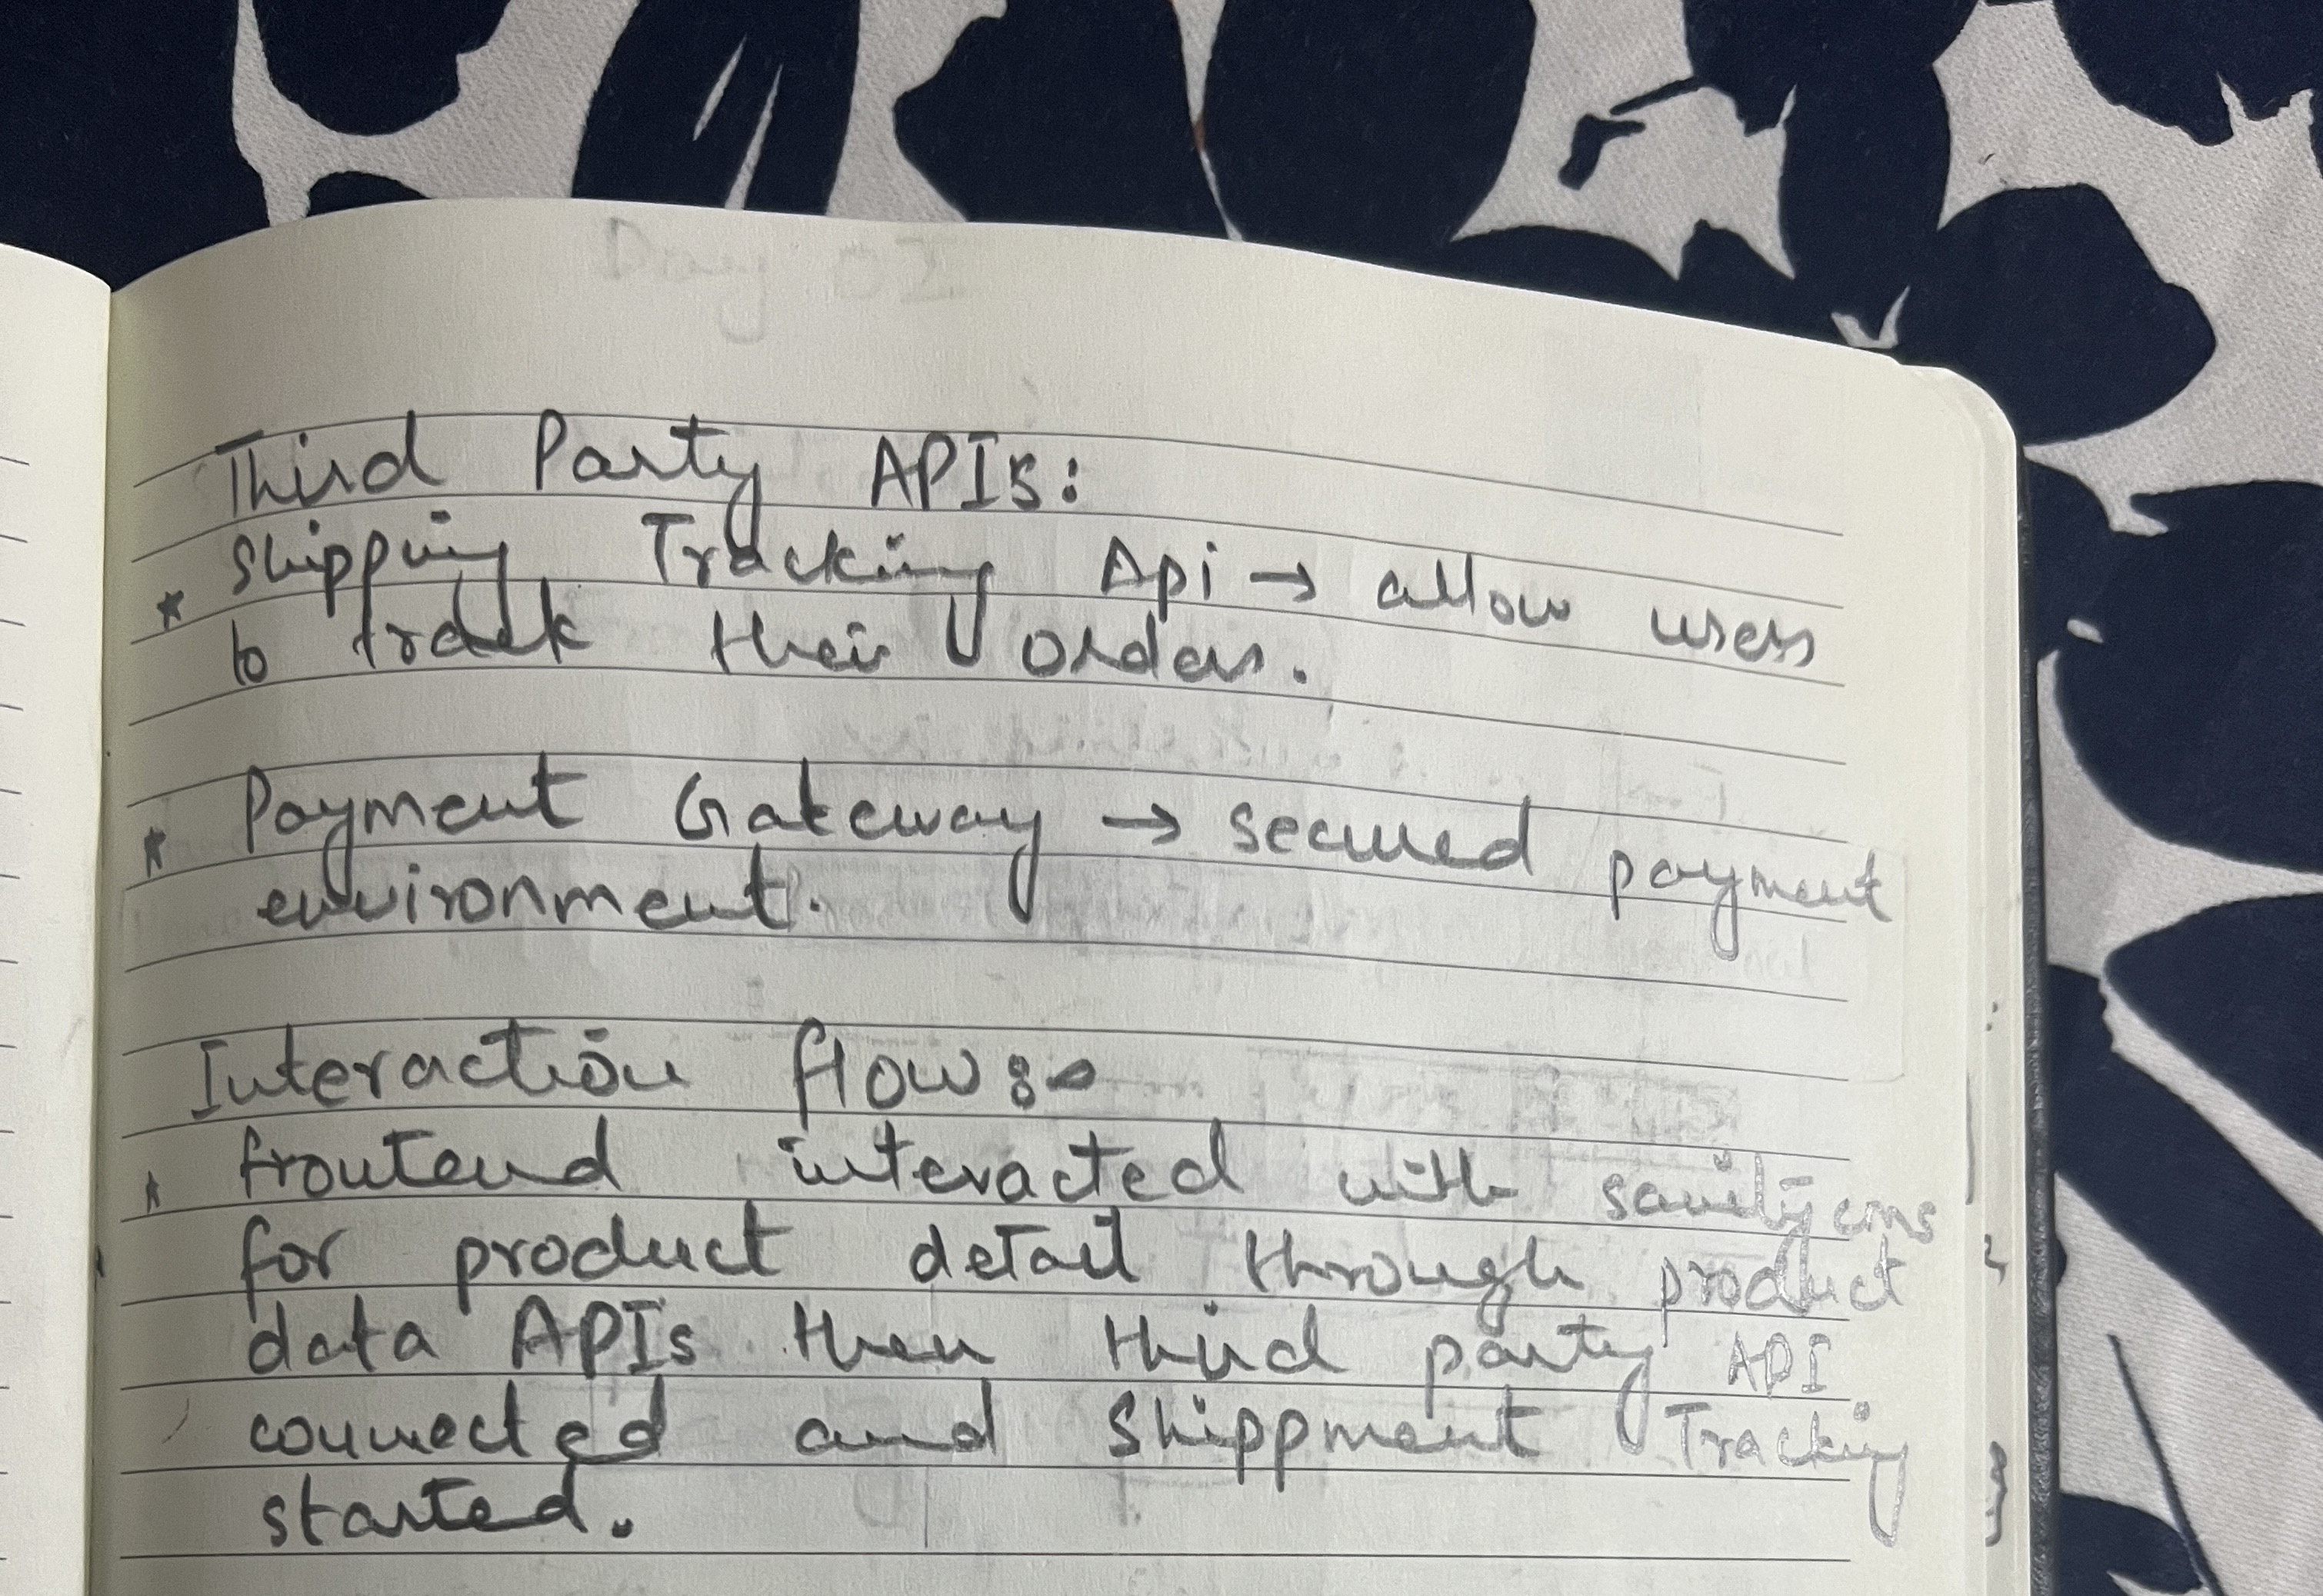 Day 02
Third Party APIs:
* Shipping Tracking Api → allow users
to track their orders.
* Payment Gateway → secured payment
environment.
Interaction flow:-
* frontend interacted with sanity cms
for product detail through product
data APIs then third party API
connected and Shippment Tracking
started.